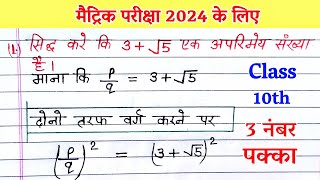 मैट्रिक परीक्षा 2024 के लिए
(1.) सिद्ध करे कि 3+√5 एक अपरिमेय संख्या है।
माना कि p/q = 3+√5
दोनो तरफ वर्ग करने पर
(p/q)² = (3+√5)²
Class
10th
3 नंबर
पक्का